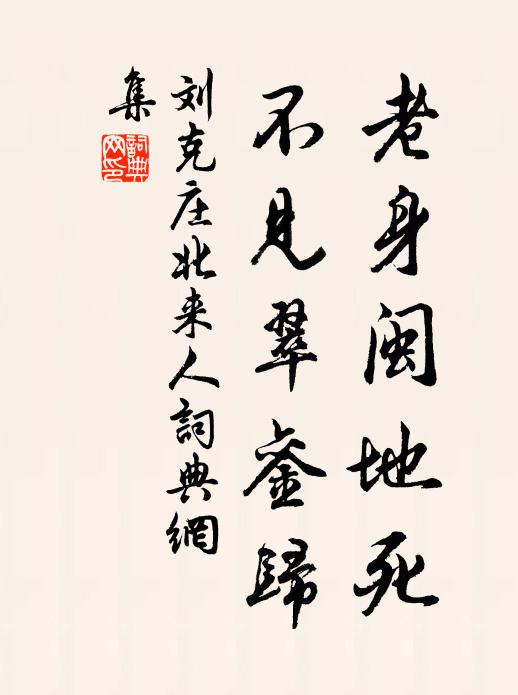 老身闽地死
不见翠銮歸
刘克庄北来人詞典網
集
詞典
网印